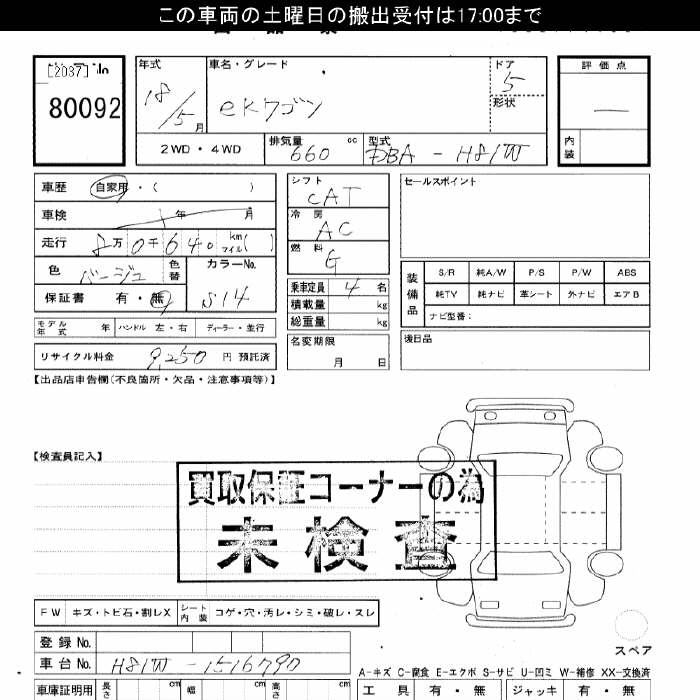 この車両の土曜日の搬出受付は17:00まで
[2037] No
80092
年式
18/5月
車名・グレード
eKワゴン
ドア
5
形状
2WD・4WD
排気量
660 cc
型式
DBA - H81W
評価点
―
内装
車歴 自家用・( )
車検 年 月
走行 8万0千640 km マイル ( )
色 ベージュ 色替
カラーNo. S14
保証書 有・無
モデル年式 年 ハンドル 左・右 ディーラー・並行
リサイクル料金 9,250 円 預託済
シフト CAT
冷房 AC
燃料 G
乗車定員 4 名
積載量 kg
総重量 kg
名変期限
月 日
セールスポイント
装備品
S/R 純A/W P/S P/W ABS
純TV 純ナビ 革シート 外ナビ エアB
ナビ型番:
後日品
【出品店申告欄(不良箇所・欠品・注意事項等)】
【検査員記入】
買取保証コーナーの為
未検査
FW キズ・トビ石・割レX シート内装 コゲ・穴・汚レ・シミ・破レ・スレ
登録No.
車台No. H81W - 1516790
スペア
A-キズ C-腐食 E-エクボ S-サビ U-凹ミ W-補修 XX-交換済
車庫証明用 長さ cm 幅 cm 高さ cm
工具 有・無 ジャッキ 有・無